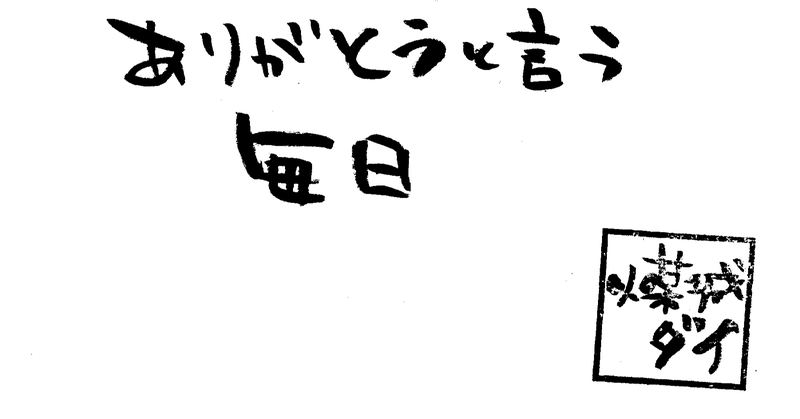 ありがとうと言う
毎日
煤城
ダイ